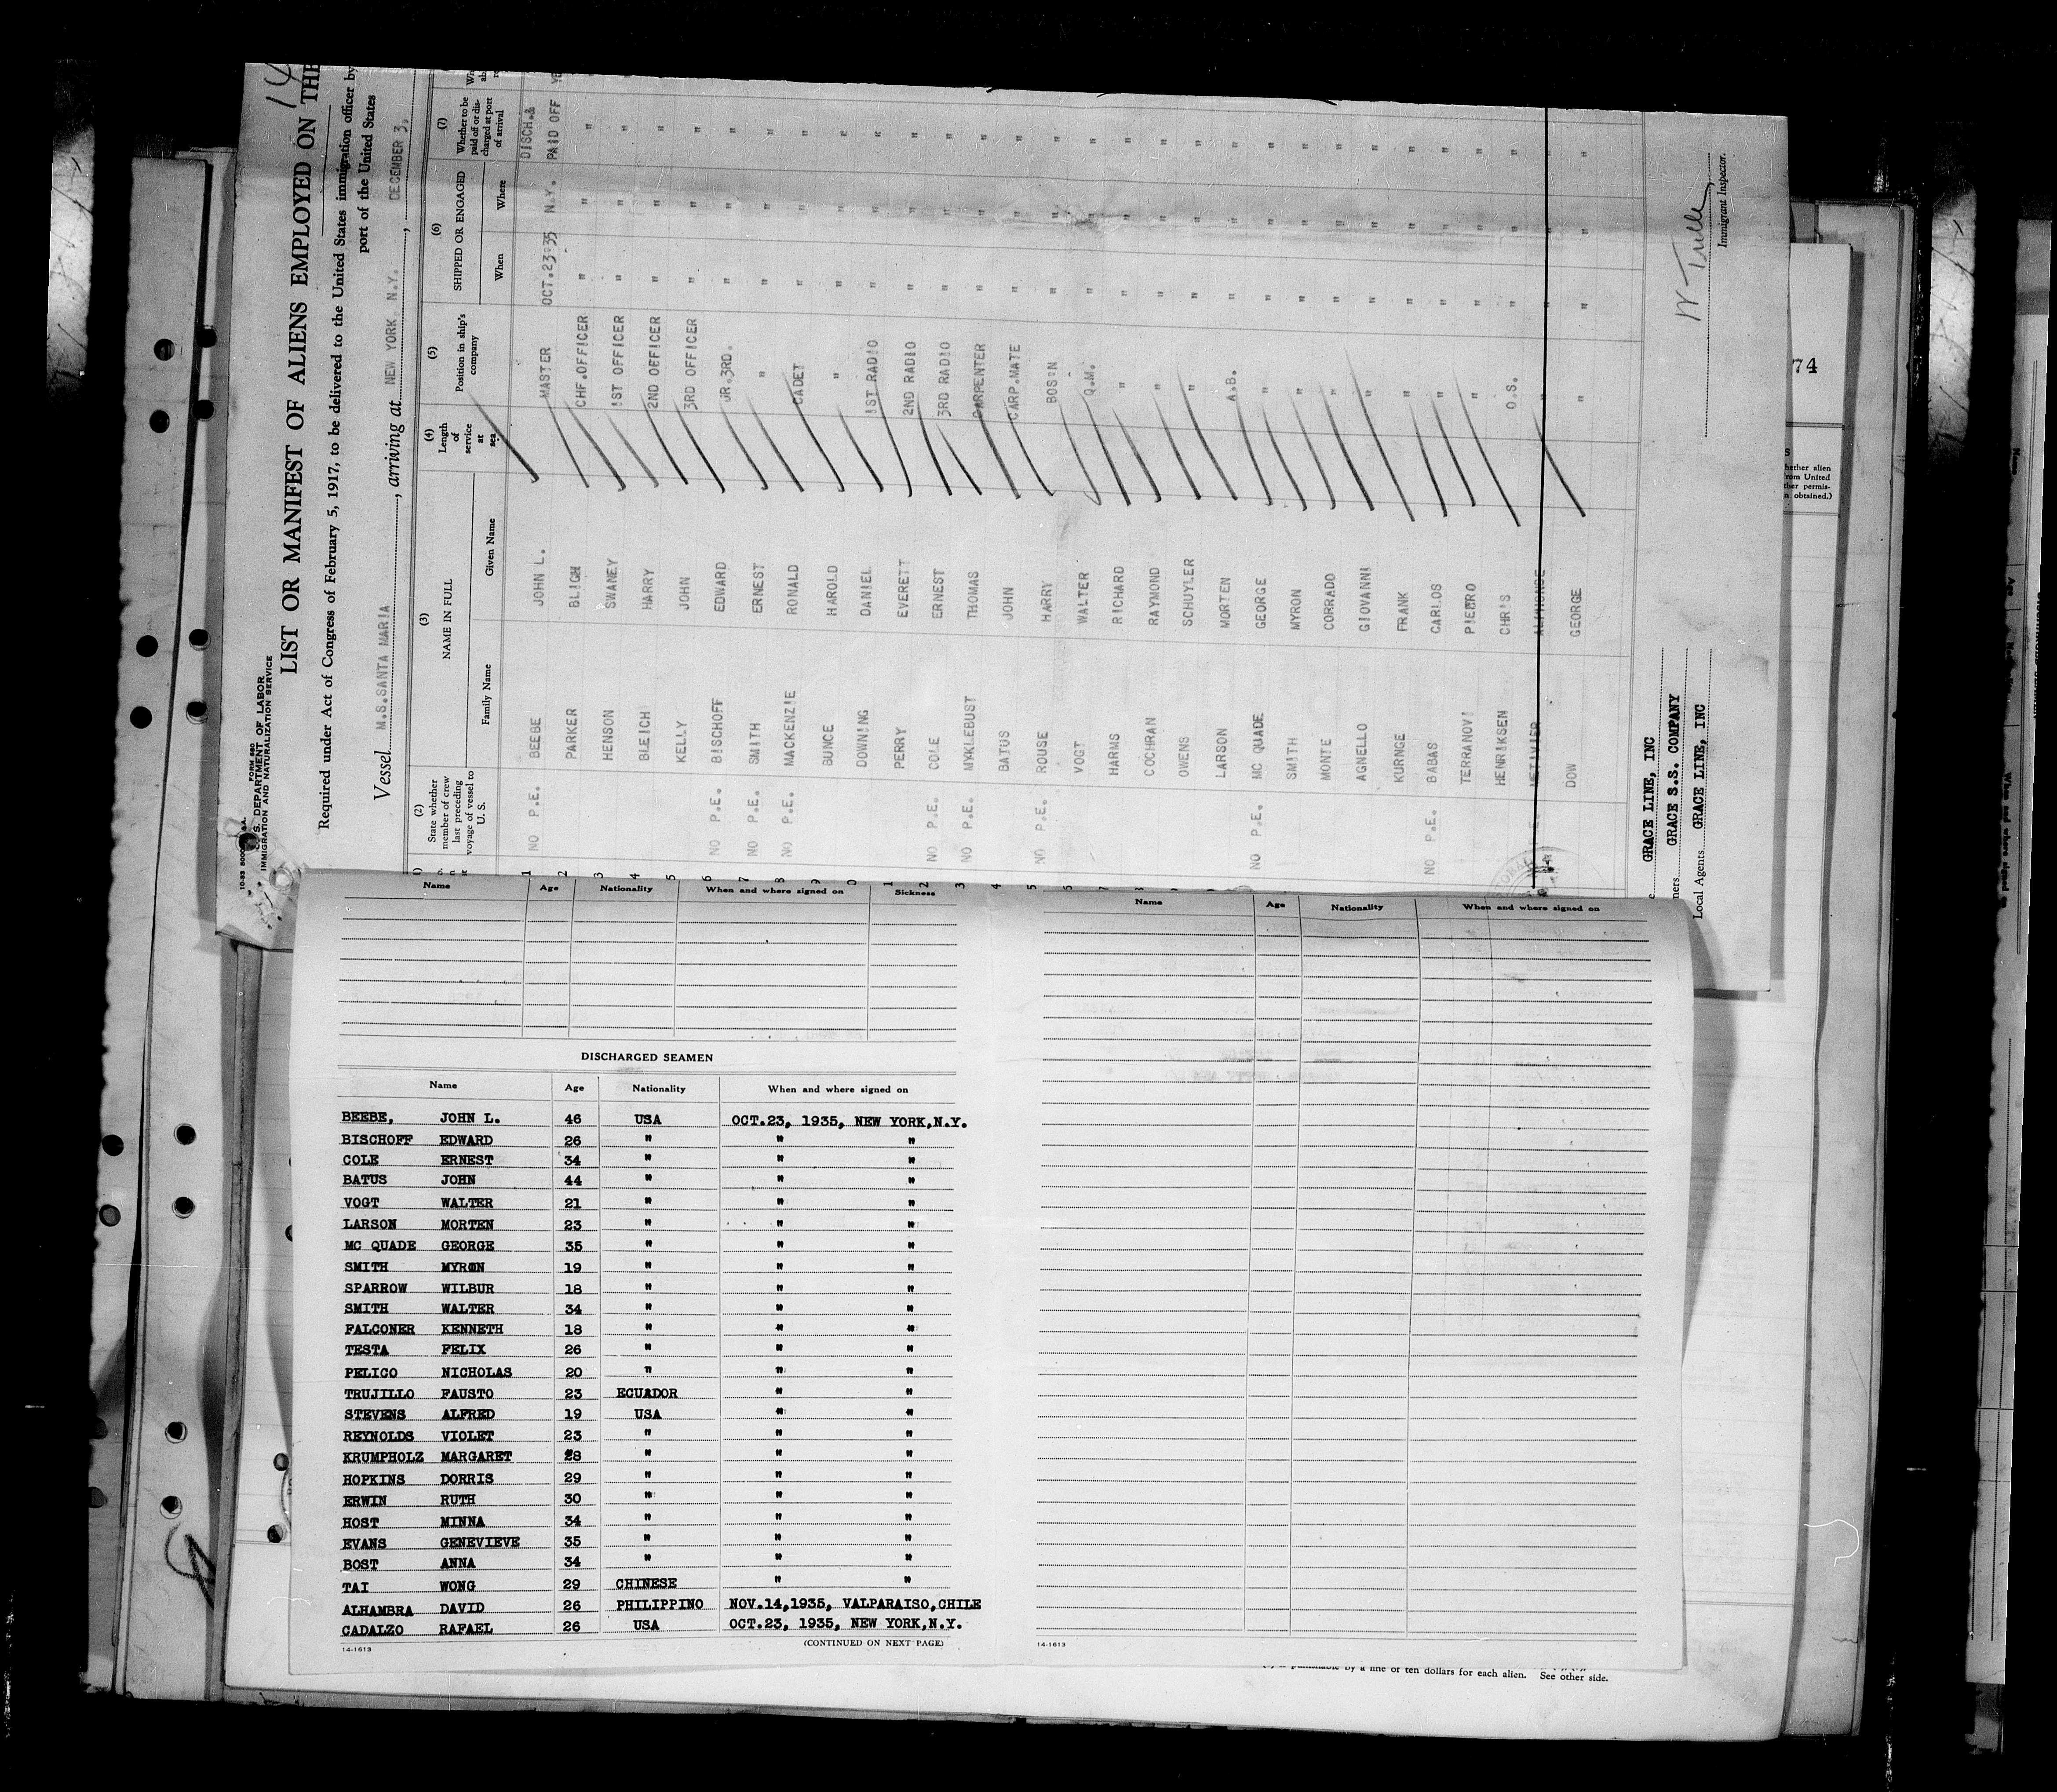 14
FORM 680
U. S. DEPARTMENT OF LABOR
IMMIGRATION AND NATURALIZATION SERVICE
LIST OR MANIFEST OF ALIENS EMPLOYED ON THE
Required under Act of Congress of February 5, 1917, to be delivered to the United States immigration officer by
port of the United States
Vessel M.S.SANTA MARIA, arriving at NEW YORK N.Y. DECEMBER 3,
(2) State whether member of crew last preceding voyage of vessel to U. S.
(3) NAME IN FULL Family Name Given Name
(4) Length of service at sea
(5) Position in ship's company
(6) SHIPPED OR ENGAGED When Where
(7) Whether to be paid off or discharged at port of arrival
DISCH.&
1 NO P.E. BEEBE JOHN L. MASTER OCT.23'35 N.Y. PAID OFF YE
2 PARKER BLIGH CHF.OFFICER " " "
3 HENSON SWANEY 1ST OFFICER " " "
4 BLEICH HARRY 2ND OFFICER " " "
5 KELLY JOHN 3RD OFFICER " " "
6 NO P.E. BISCHOFF EDWARD JR.3RD. " " "
7 NO P.E. SMITH ERNEST " " " "
8 NO P.E. MACKENZIE RONALD CADET " " "
9 BUNCE HAROLD " " " "
0 DOWNING DANIEL 1ST RADIO " " "
1 PERRY EVERETT 2ND RADIO " " "
2 NO P.E. COLE ERNEST 3RD RADIO " " "
3 NO P.E. MYKLEBUST THOMAS CARPENTER " " "
4 BATUS JOHN CARP.MATE " " "
5 NO P.E. ROUSE HARRY BOS'N " " "
VOGT WALTER Q.M. " " "
HARMS RICHARD " " " "
COCHRAN RAYMOND " " " "
OWENS SCHUYLER " " " "
LARSON MORTEN A.B. " " "
NO P.E. MC QUADE GEORGE " " " "
SMITH MYRON " " " "
MONTE CORRADO " " " "
AGNELLO GIOVANNI " " " "
KURNGE FRANK " " " "
NO P.E. BABAS CARLOS " " " "
TERRANOVI PIETRO " " " "
HENRIKSEN CHRIS O.S. " " "
METIVIER
DOW GEORGE " " " "
GRACE LINE, INC
GRACE S.S. COMPANY
Local Agents GRACE LINE, INC
Immigrant Inspector.
74
Name Age Nationality When and where signed on Sickness
Name Age Nationality When and where signed on
DISCHARGED SEAMEN
Name Age Nationality When and where signed on
BEEBE, JOHN L. 46 USA OCT.23, 1935, NEW YORK,N.Y.
BISCHOFF EDWARD 26 " " "
COLE ERNEST 34 " " "
BATUS JOHN 44 " " "
VOGT WALTER 21 " " "
LARSON MORTEN 23 " " "
MC QUADE GEORGE 35 " " "
SMITH MYRON 19 " " "
SPARROW WILBUR 18 " " "
SMITH WALTER 34 " " "
FALCONER KENNETH 18 " " "
TESTA FELIX 26 " " "
PELICO NICHOLAS 20 " " "
TRUJILLO FAUSTO 23 ECUADOR " "
STEVENS ALFRED 19 USA " "
REYNOLDS VIOLET 23 " " "
KRUMPHOLZ MARGARET 28 " " "
HOPKINS DORRIS 29 " " "
ERWIN RUTH 30 " " "
HOST MINNA 34 " " "
EVANS GENEVIEVE 35 " " "
BOST ANNA 34 " " "
TAI WONG 29 CHINESE " "
ALHAMBRA DAVID 26 PHILIPPINO NOV.14,1935, VALPARAISO,CHILE
CADALZO RAFAEL 26 USA OCT.23, 1935, NEW YORK,N.Y.
14-1613 (CONTINUED ON NEXT PAGE)
14-1613
punishable by a fine of ten dollars for each alien. See other side.